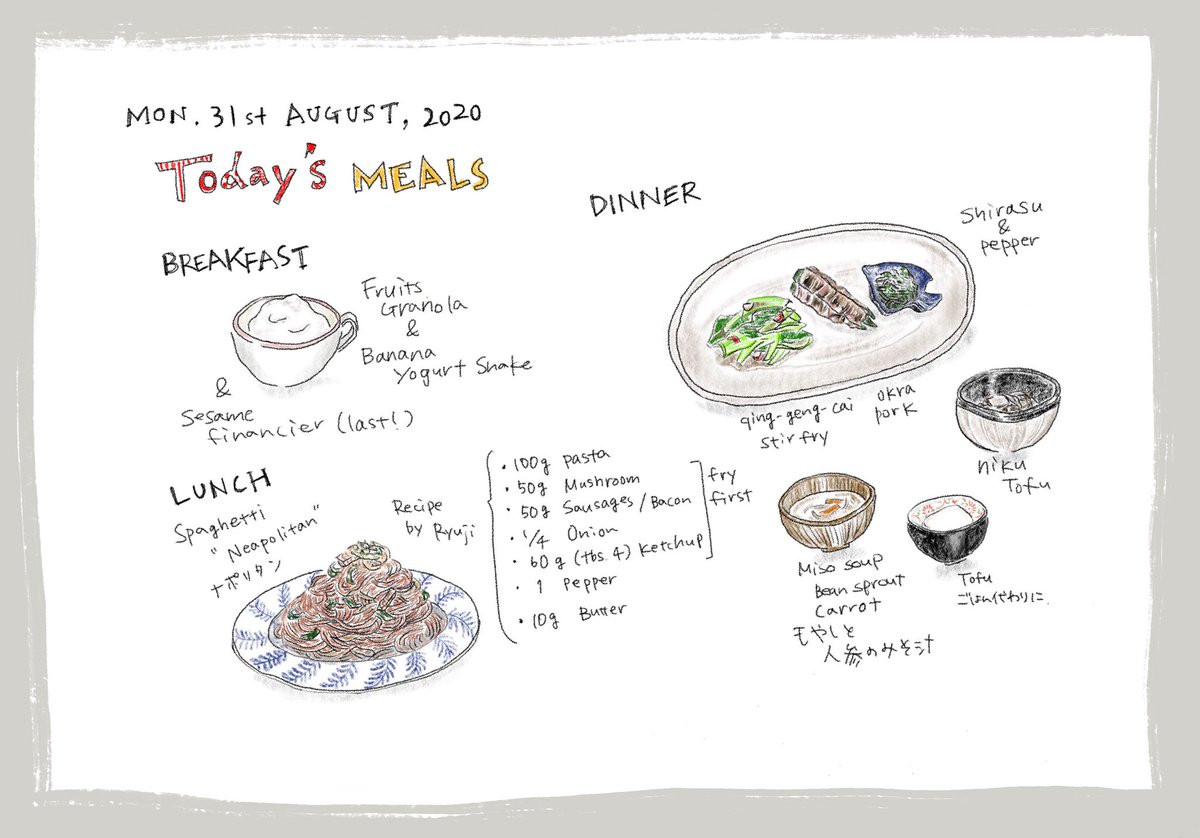 MON. 31st AUGUST, 2020
Today's MEALS
BREAKFAST
Fruits
Granola
&
Banana
Yogurt Shake
&
Sesame
financier (last!)
LUNCH
Spaghetti
"Neapolitan"
ナポリタン
Recipe
by Ryuji
・100g pasta
・50g Mushroom
・50g Sausages/Bacon
・1/4 Onion
・60g (tbs. 4) Ketchup
・1 Pepper
・10g Butter
fry
first
DINNER
Shirasu
&
pepper
qing-geng-cai
stir fry
okra
pork
niku
Tofu
Miso soup
Bean sprout
Carrot
もやしと
人参のみそ汁
Tofu
ごはん代わりに